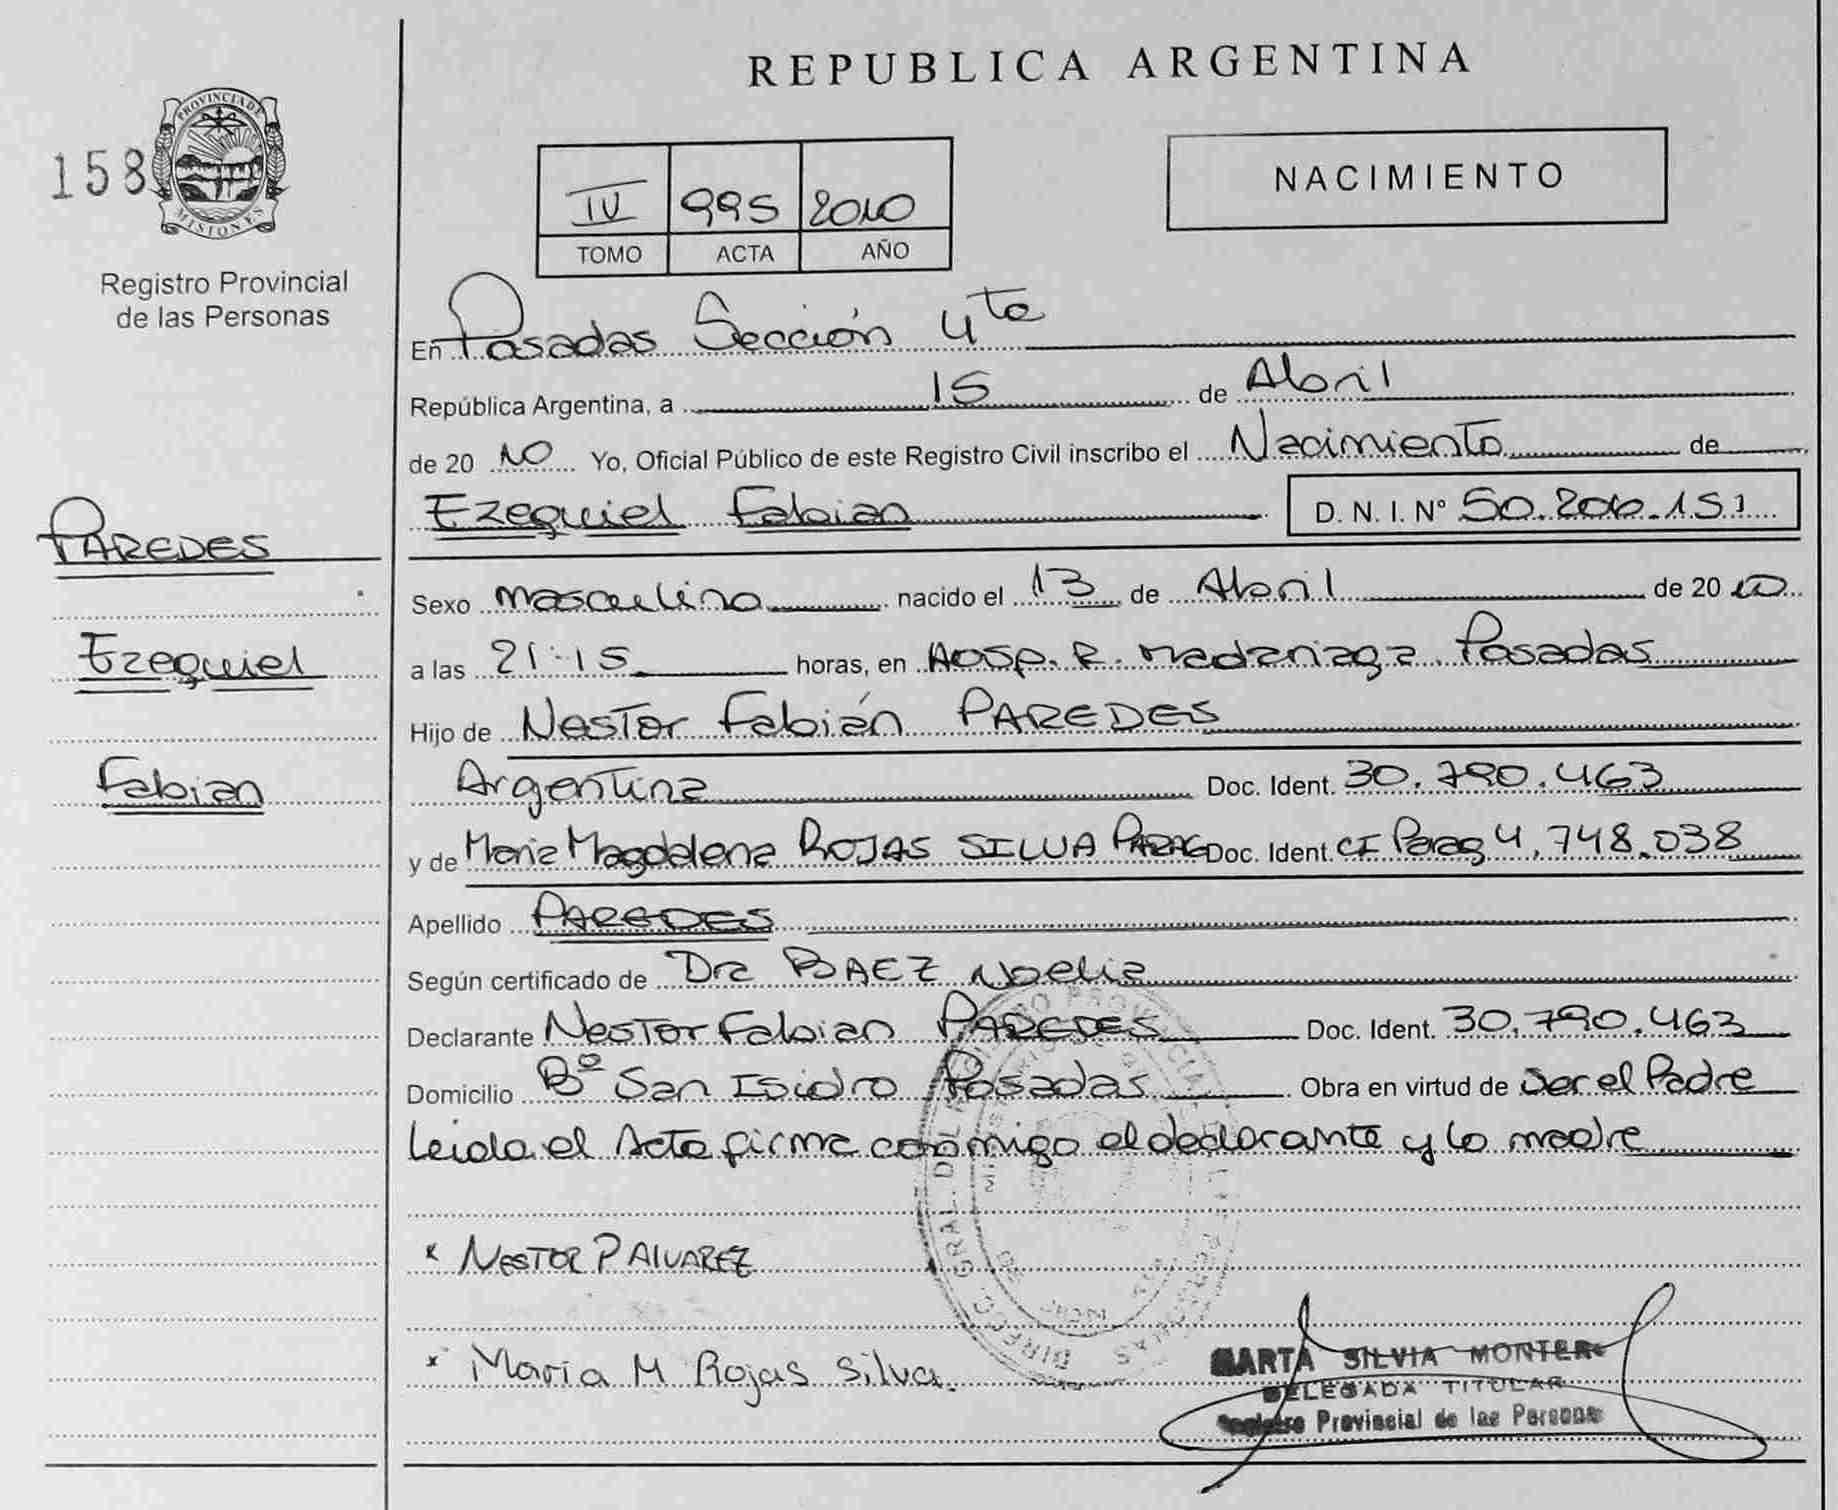 REPUBLICA ARGENTINA
158
PROVINCIA DE MISIONES
Registro Provincial
de las Personas
IV 995 2010
TOMO ACTA AÑO
NACIMIENTO
En Posadas Sección 4ta
República Argentina, a 15 de Abril
de 20 10 Yo, Oficial Público de este Registro Civil inscribo el Nacimiento de
Ezequiel Fabian D. N. I. Nº 50.206.151
PAREDES
Ezequiel
Fabian
Sexo masculino nacido el 13 de Abril de 20 10
a las 21:15 horas, en Hosp. R. Madariaga Posadas
Hijo de Nestor Fabián PAREDES
Argentina Doc. Ident. 30.790.463
y de Maria Magdalena ROJAS SILVA PARAG Doc. Ident. CI Parag 4.748.038
Apellido PAREDES
Según certificado de Dra BAEZ Noelia
Declarante Nestor Fabian PAREDES Doc. Ident. 30.790.463
Domicilio Bº San Isidro Posadas Obra en virtud de ser el Padre
Leida el Acta firma conmigo el declarante y la madre
x NESTOR P ALVAREZ
x Maria M Rojas Silva.
MARTA SILVIA MONTER
DELEGADA TITULAR
Registro Provincial de las Personas
DIRECC. GRAL. DEL REGISTRO PROVINCIAL